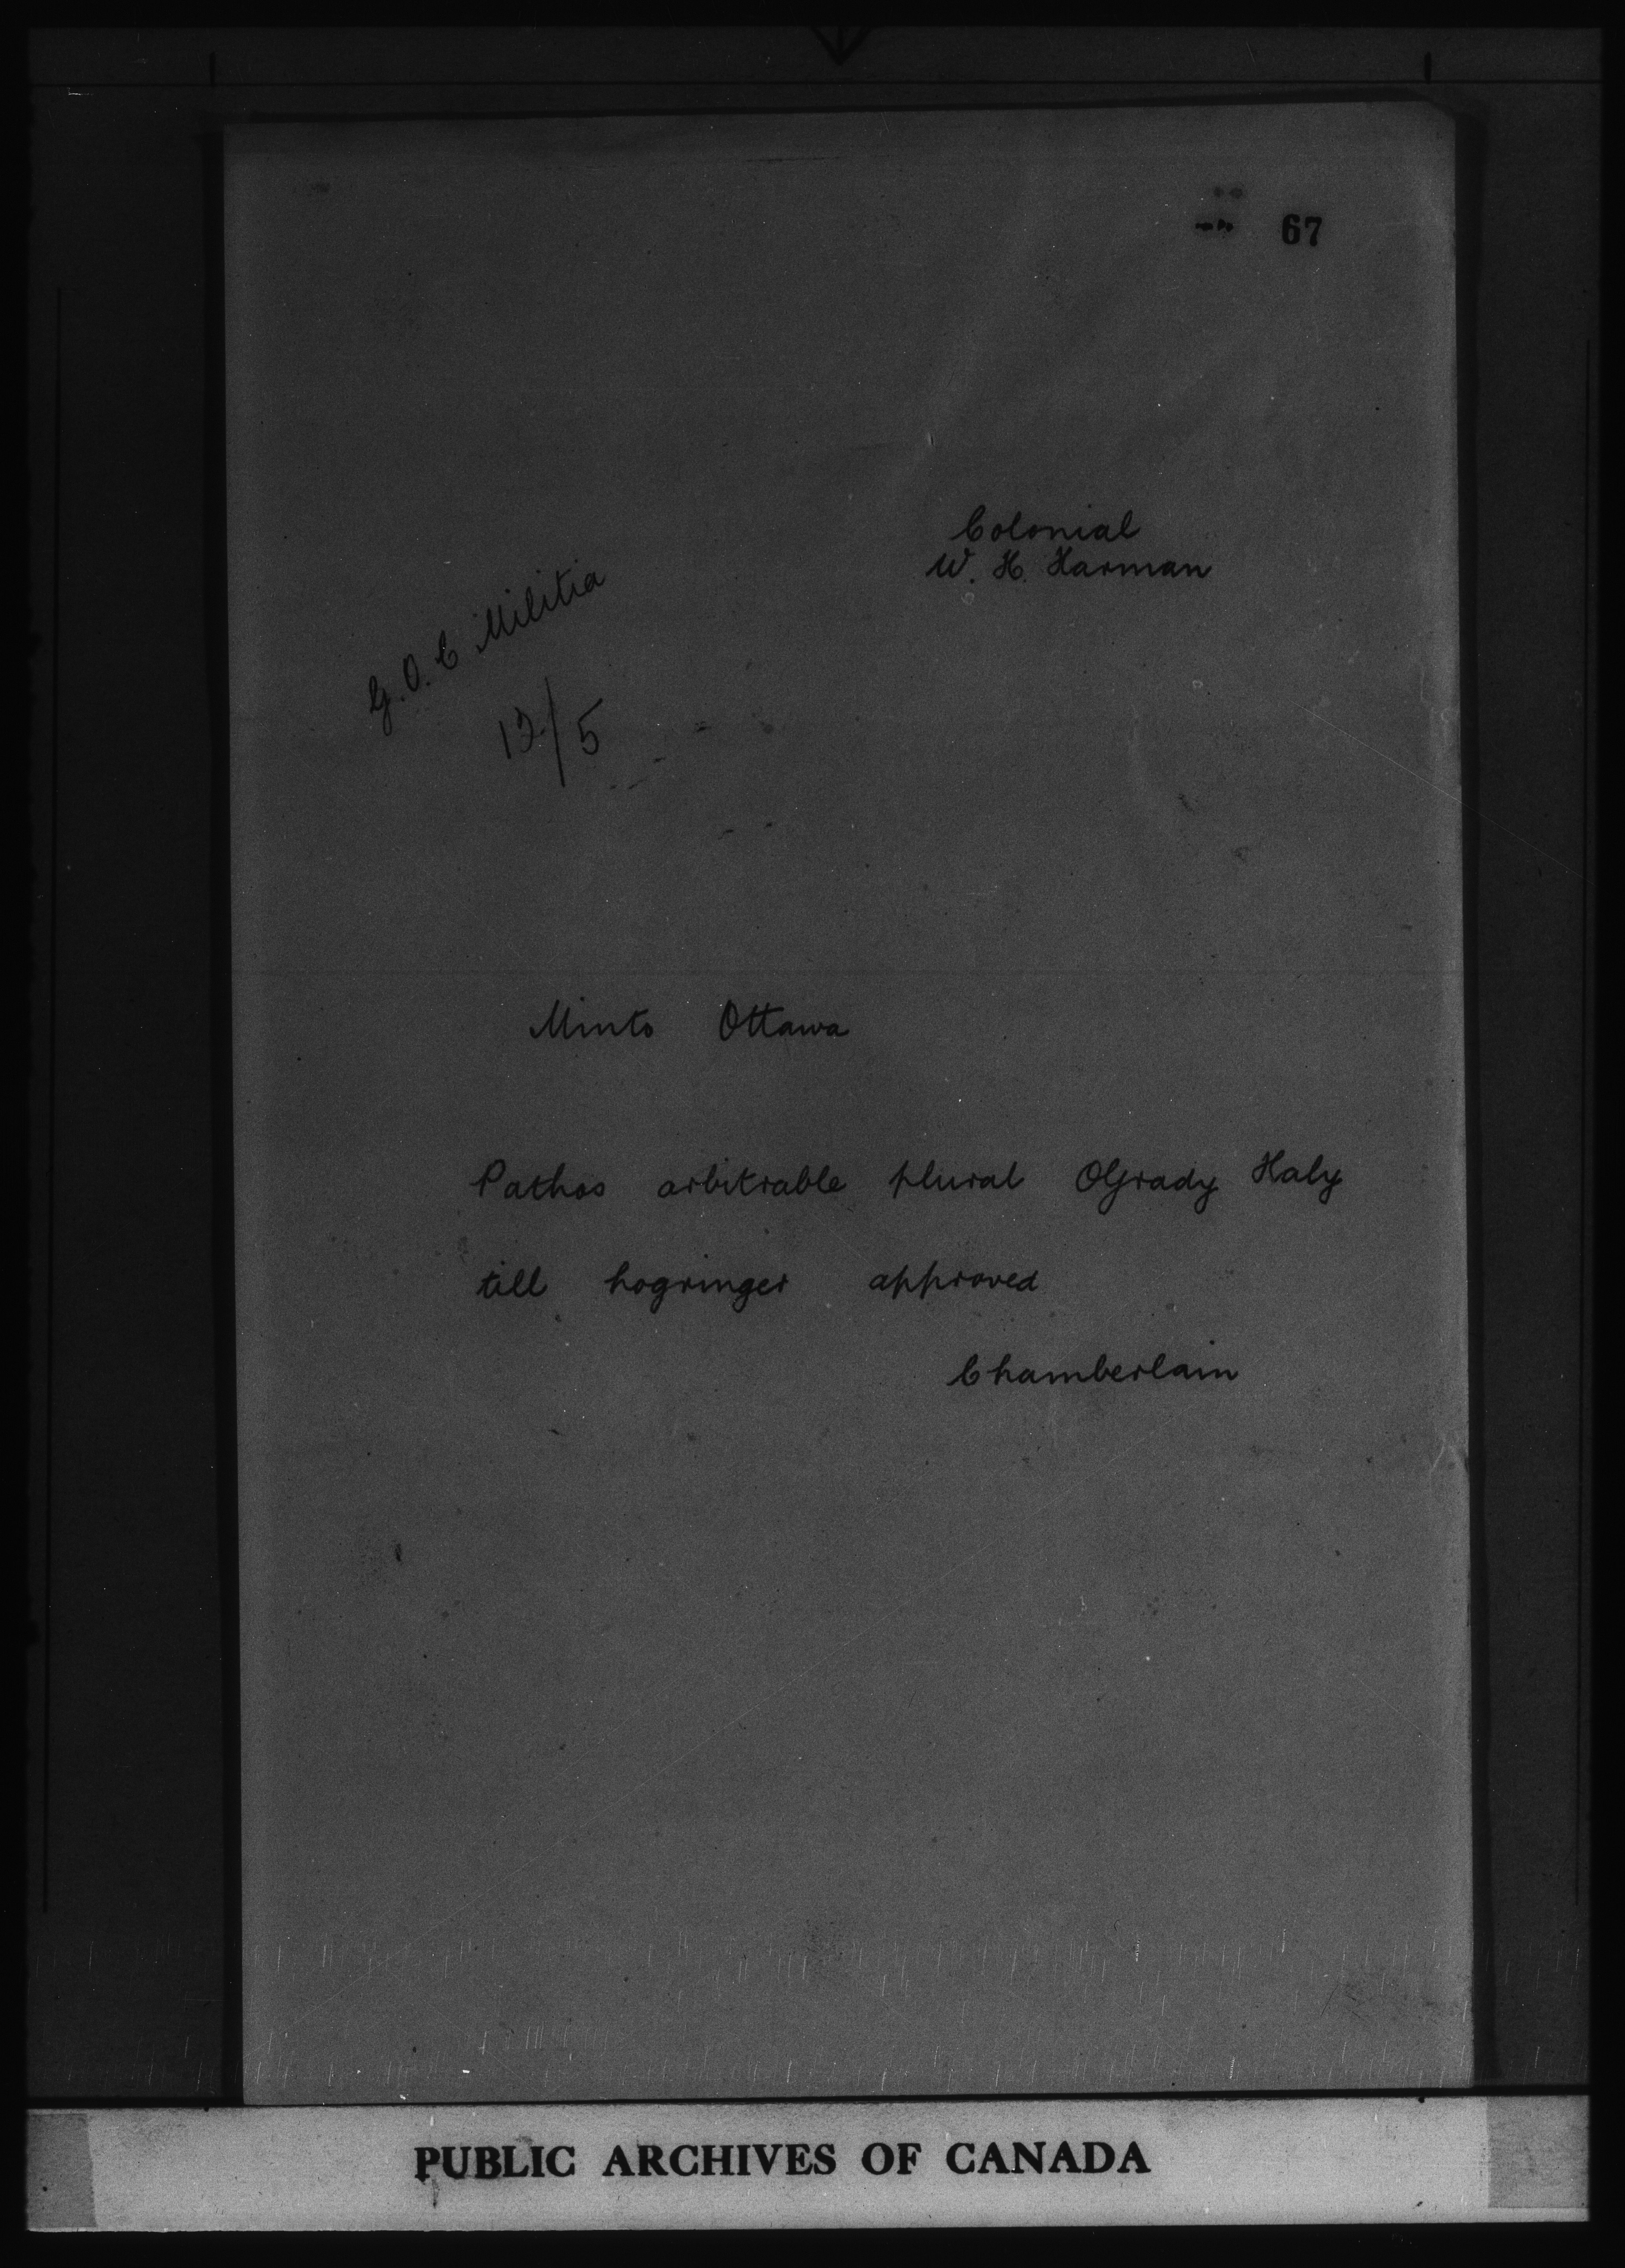 67
Colonial
W. H. Harman
G. O. C Militia
12/5
Minto Ottawa
Pathos arbitrable plural OGrady Haly
till hogringer approved
Chamberlain
PUBLIC ARCHIVES OF CANADA